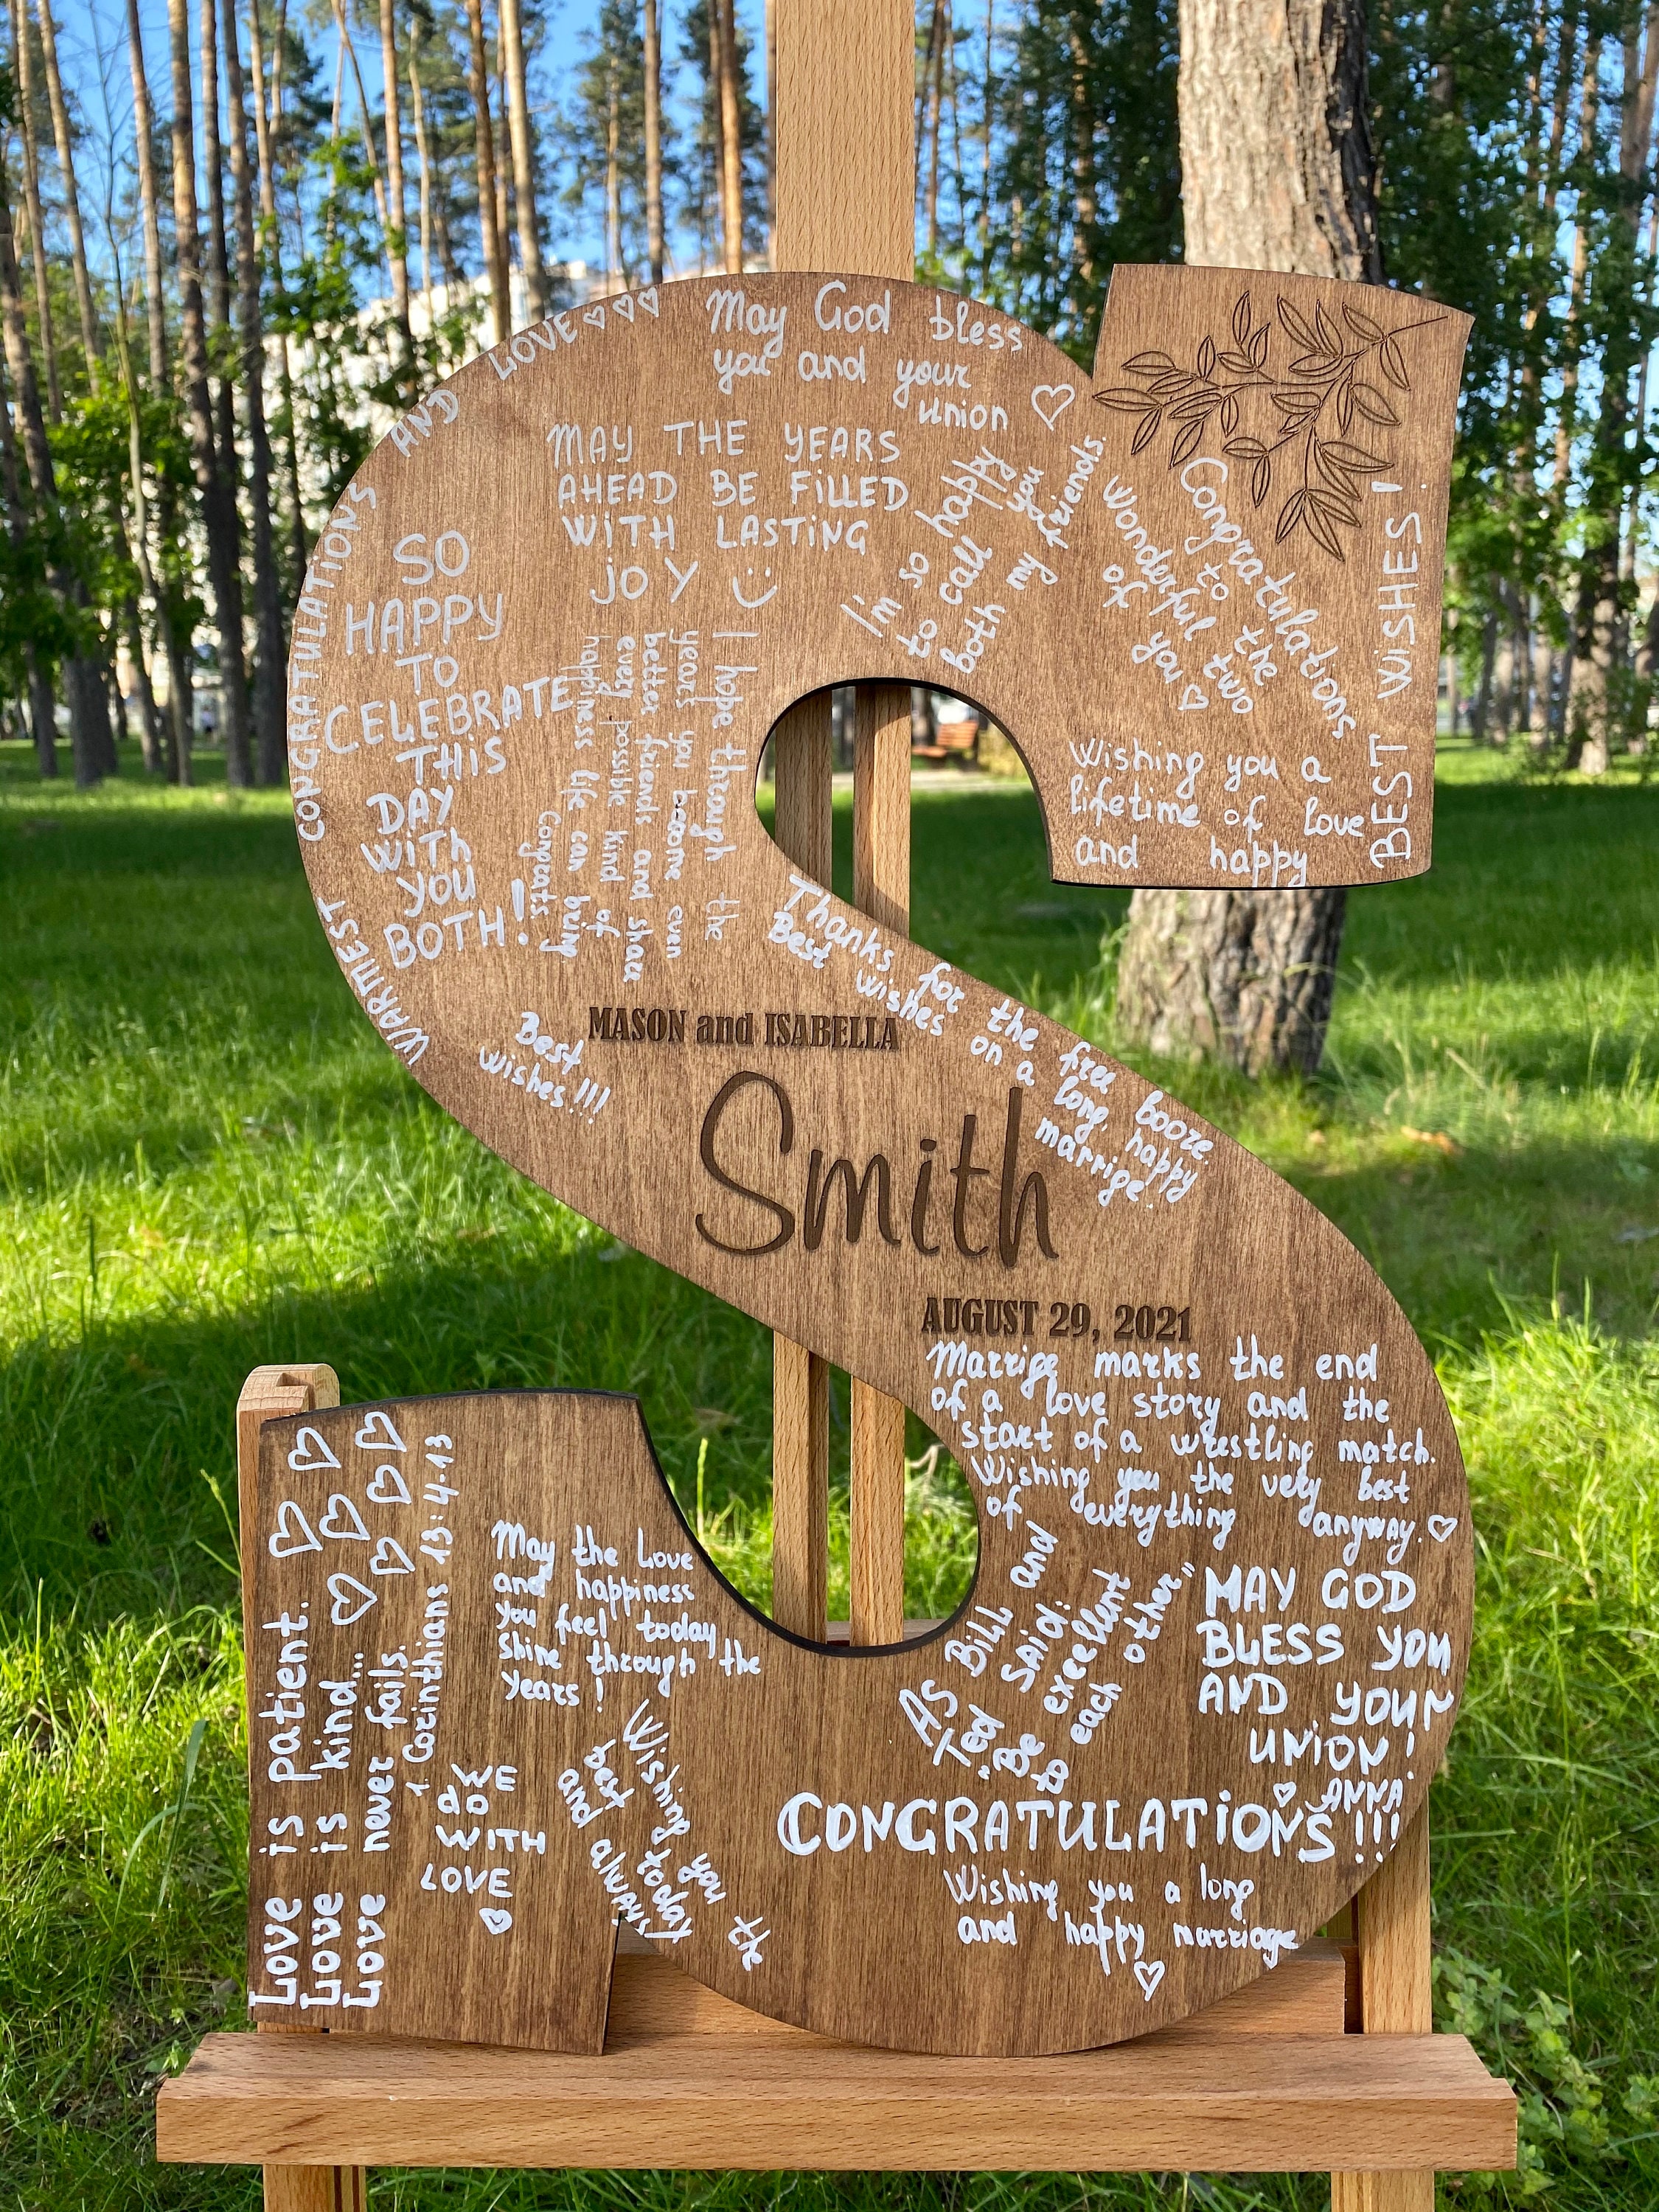 WARMEST CONGRATULATIONS AND LOVE
May God bless
you and your
union
MAY THE YEARS
AHEAD BE FiLLED
WiTH LASTiNG
joy
SO
HAPPY
TO
CELEBRATE
THiS
DAY
WiTH
YOU
BOTH!
I hope through the
years you become even
better friends and share
every possible kind of
happiness life can bring
Congrats
I'm so happy
to call you
both my friends.
Congratulations
to the
wonderful two
of you
BEST WiSHES!
Wishing you a
lifetime of love
and happy
Thanks for the free booze.
Best wishes on a long, happy
marrige!
Best
wishes!!!
MASON and ISABELLA
Smith
AUGUST 29, 2021
Marrige marks the end
of a love story and the
start of a wrestling match.
Wishing you the very best
of everything anyway.
AS Bill and
Ted said:
"Be excellent
each other"
MAY GOD
BLESS YOU
AND YOUR
UNiON!
ANNA
CONGRATULATiONS!!!
Wishing you a long
and happy marriage
May the Love
and happiness
you feel today
shine through the
years!
Wishing you the
best today
and always!
WE
do
WITH
LOVE
Love is patient.
Love is kind...
Love never fails.
1 Corinthians 13:4-13